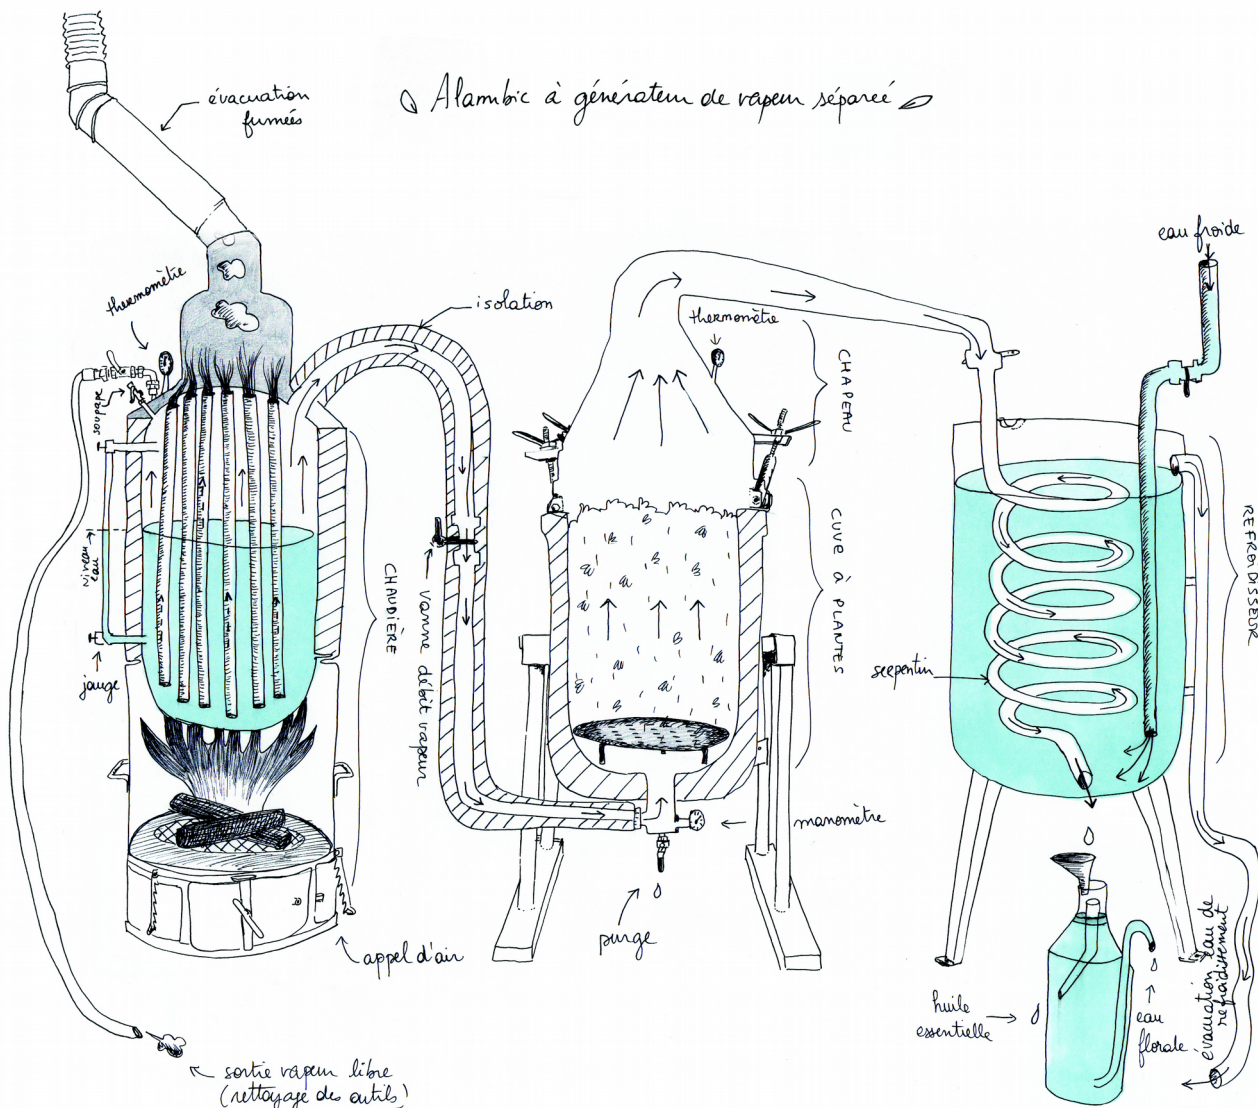 Alambic à générateur de vapeur séparée
évacuation
fumées
thermomètre
soupape
niveau
eau
jauge
CHAUDIÈRE
appel d'air
sortie vapeur libre
(nettoyage des outils)
isolation
vanne débit vapeur
thermomètre
CHAPEAU
CUVE à PLANTES
manomètre
purge
eau froide
REFROIDISSEUR
serpentin
huile
essentielle
eau
florale
évacuation eau de
refroidissement